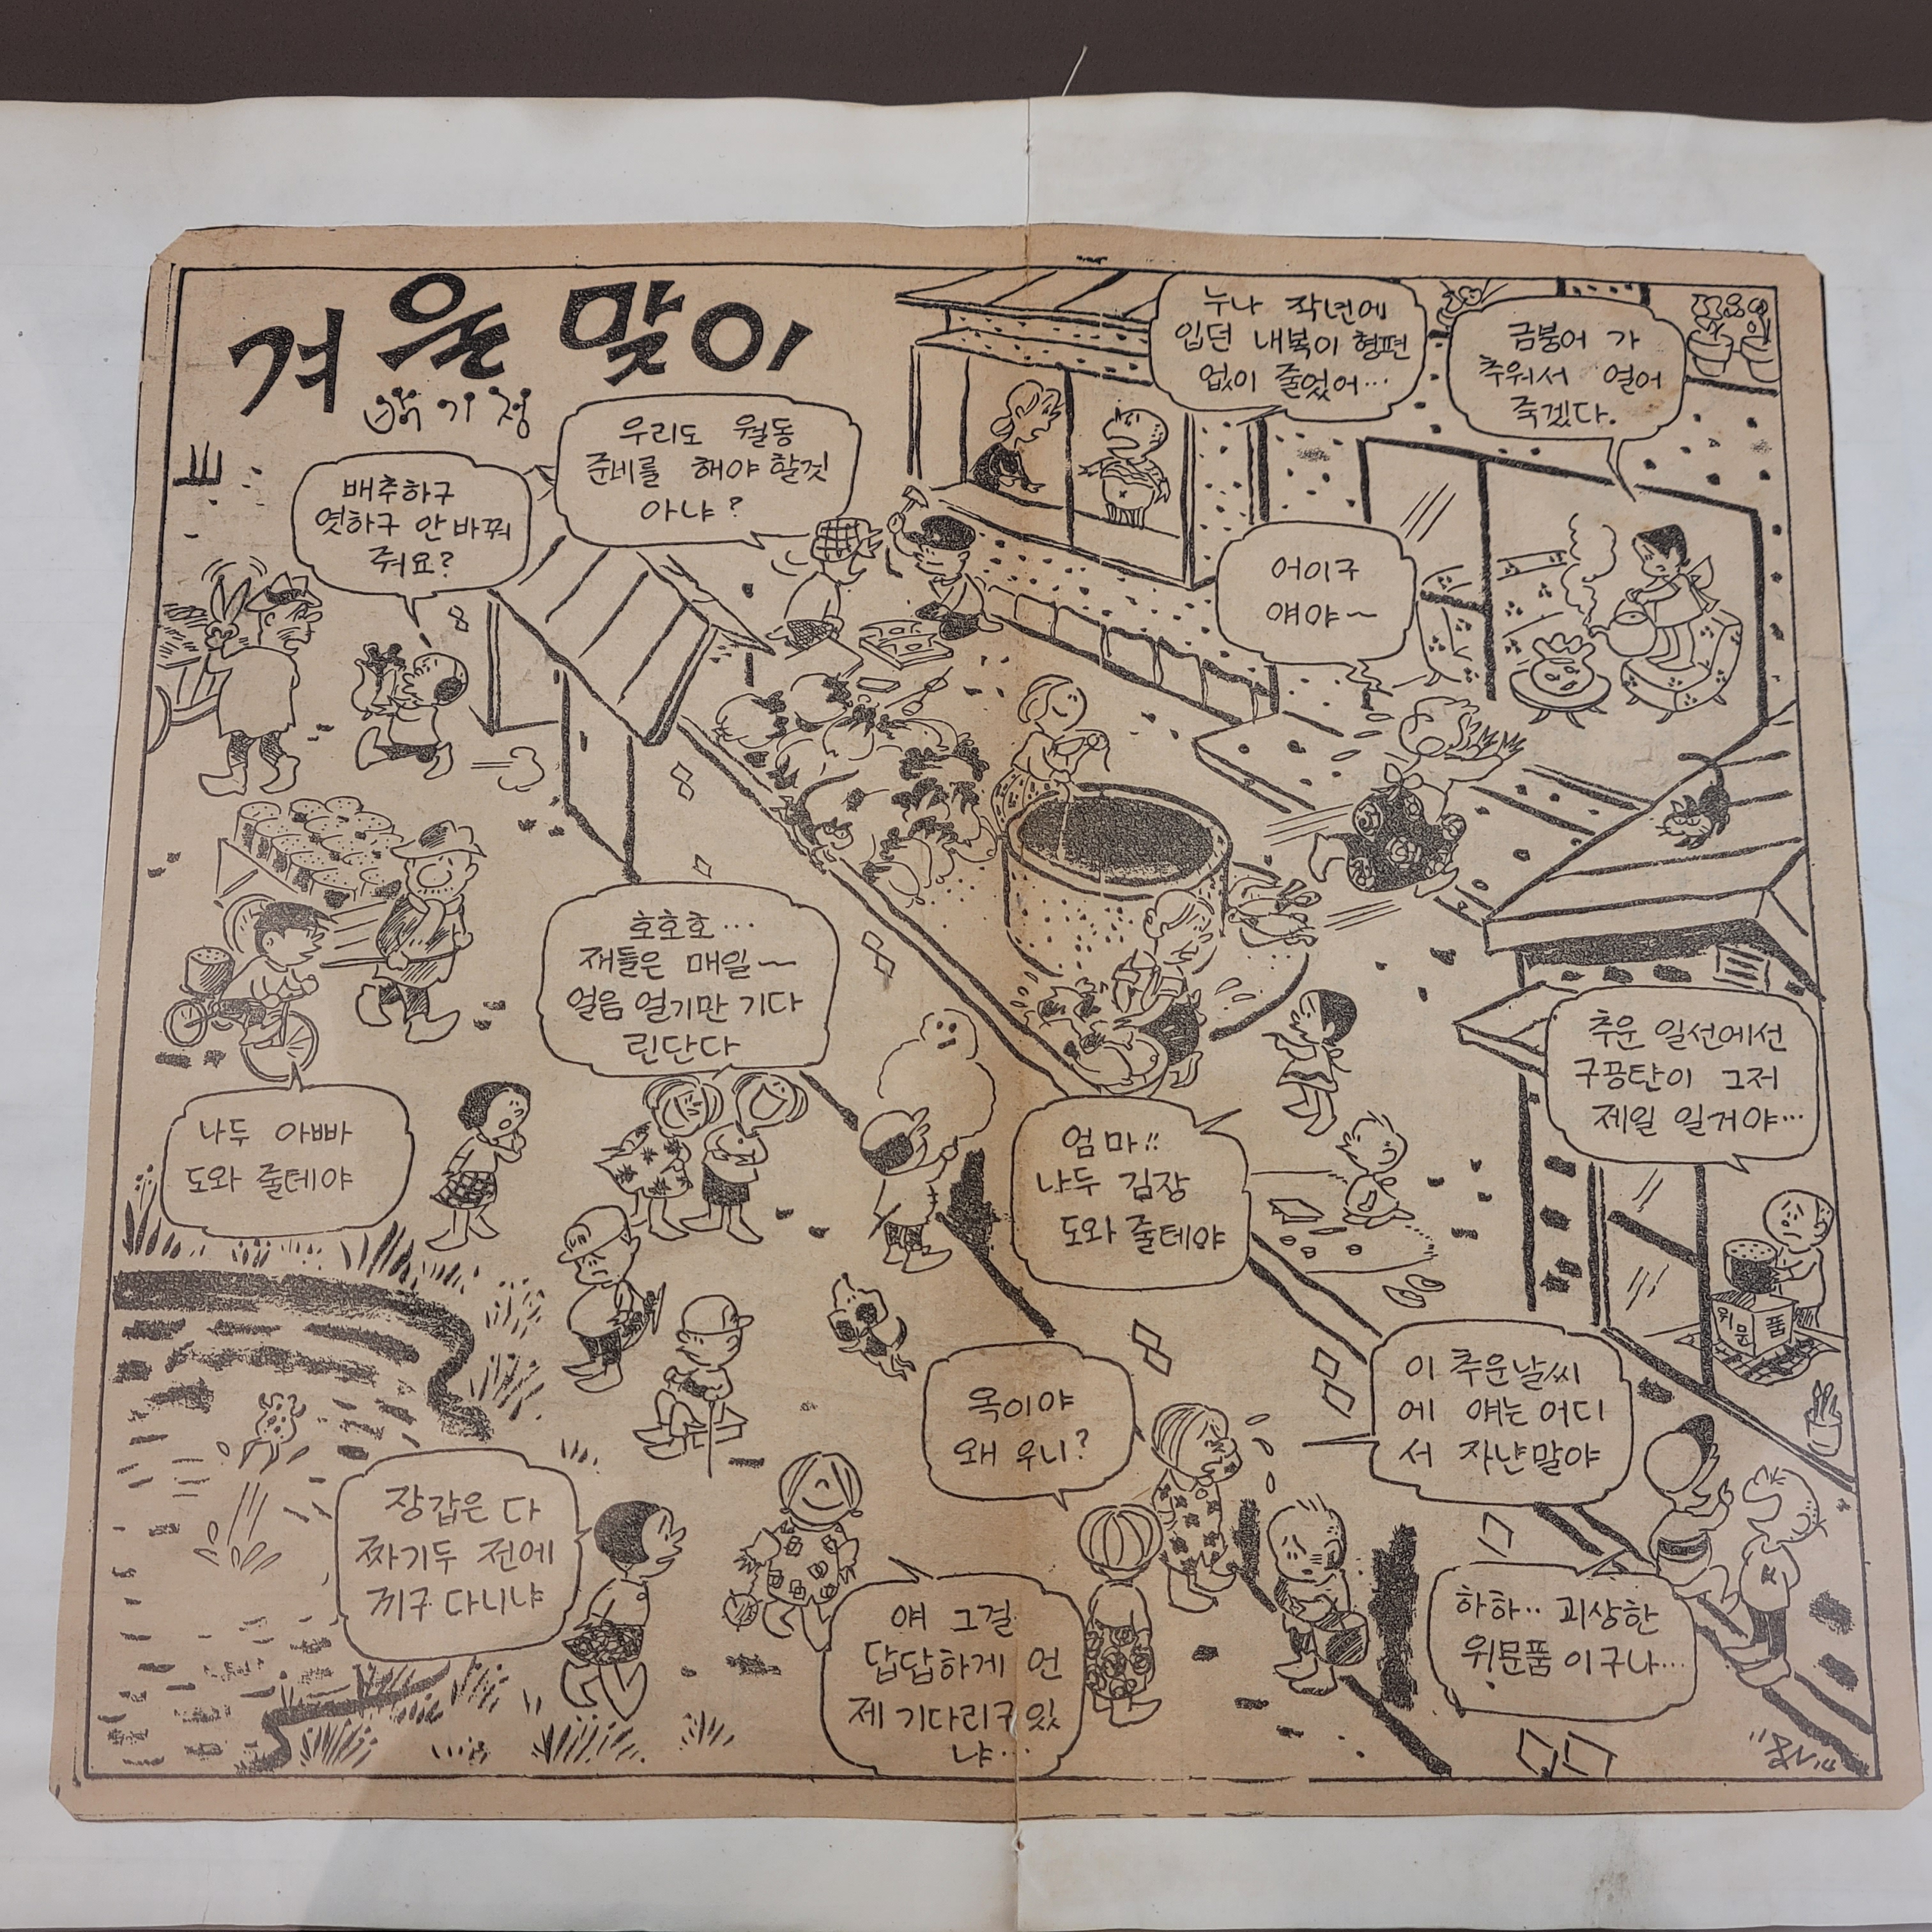 겨울맞이
누나 작년에
입던 내복이 형편
없이 줄었어…
금붕어 가
추워서 얼어
죽겠다.
우리도 월동
준비를 해야 할것
아냐?
배추하구
엿하구 안 바꿔
줘요?
어이구
얘야~
호호호…
쟤들은 매일~
얼음 얼기만 기다
린단다
추운 일선에선
구공탄이 그저
제일 일거야…
나두 아빠
도와 줄테야
엄마!!
나두 김장
도와 줄테야
위문품
옥이야
왜 우니?
이 추운날씨
에 얘는 어디
서 자냔말야
장갑은 다
짜기두 전에
끼구 다니냐
얘 그걸
답답하게 언
제 기다리구 있
냐…
하하.. 괴상한
위문품 이구나…